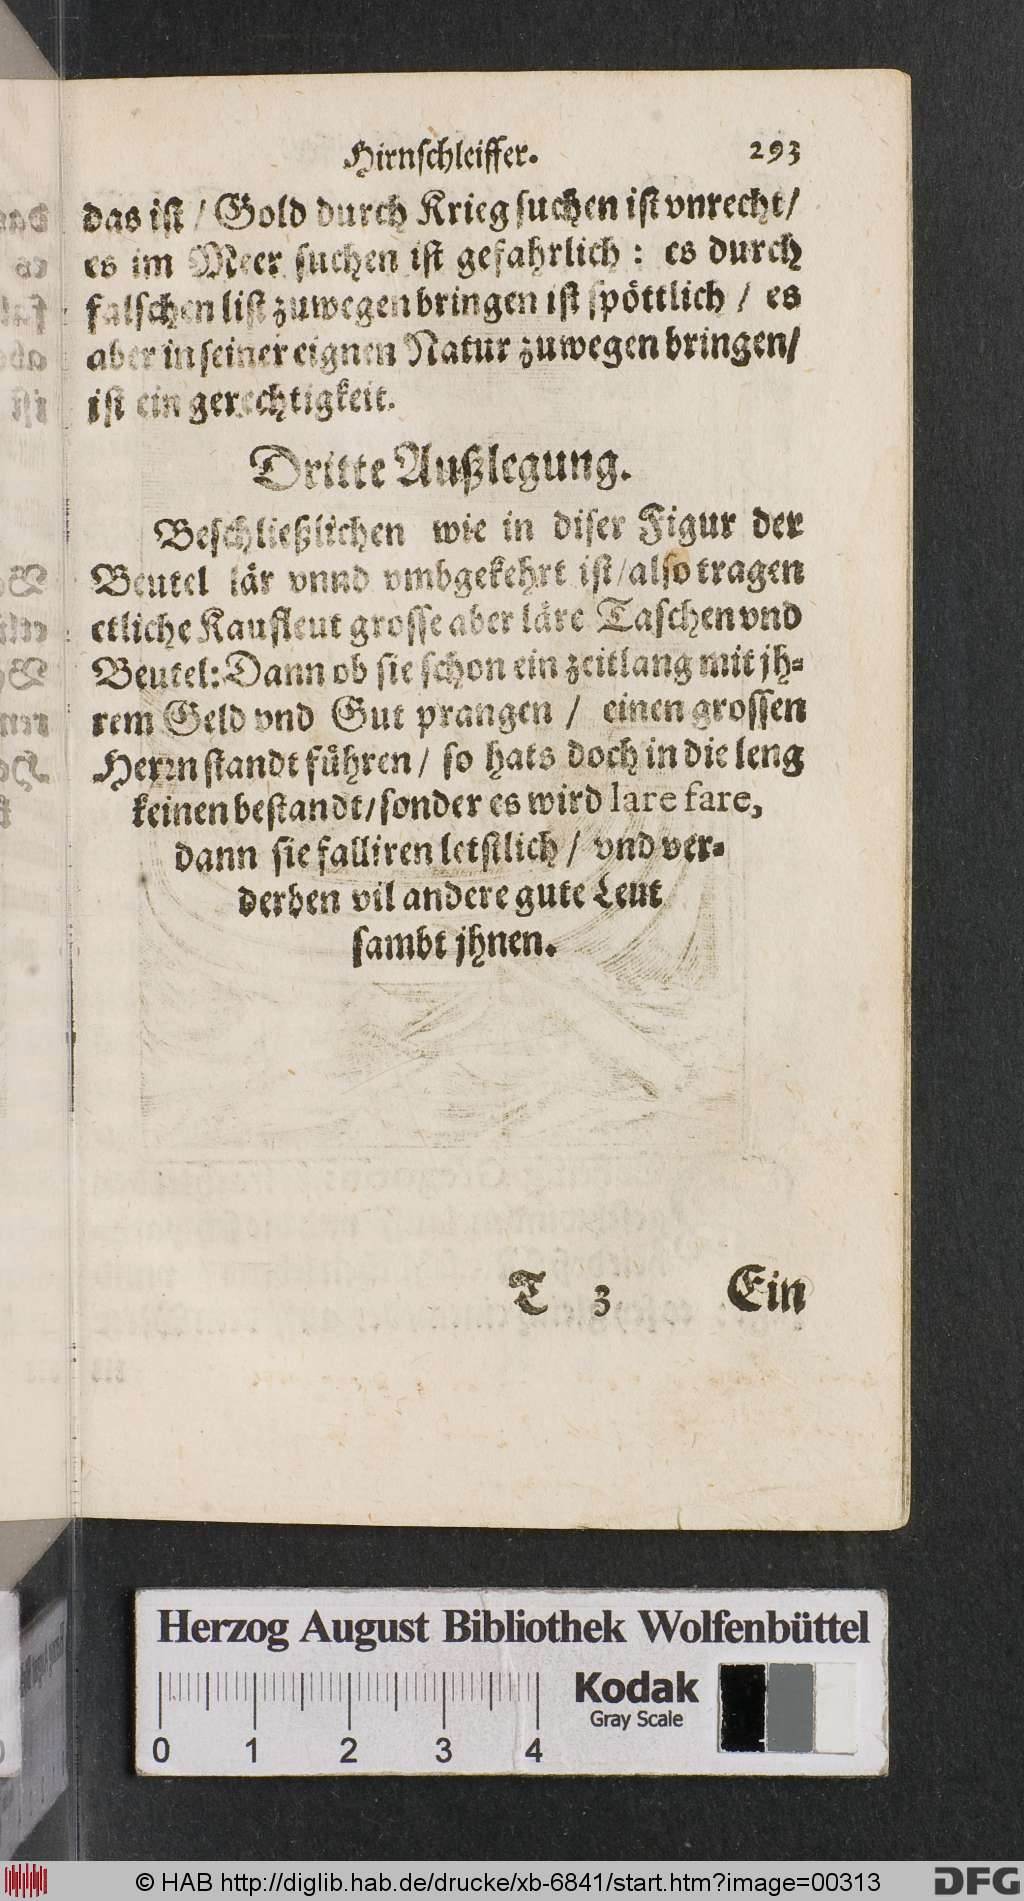 Hirnschleiffer. 293
das ist / Gold durch Krieg suchen ist vnrecht /
es im Meer suchen ist gefahrlich : es durch
falschen list zuwegen bringen ist spöttlich / es
aber in seiner eignen Natur zuwegen bringen /
ist ein gerechtigkeit.
Dritte Außlegung.
Beschließlichen wie in diser Figur der
Beutel lär vnnd vmbgekehrt ist / also tragen
etliche Kaufleut grosse aber läre Taschen vnd
Beutel: Dann ob sie schon ein zeitlang mit jh-
rem Geld vnd Gut prangen / einen grossen
Herrn standt führen / so hats doch in die leng
keinen bestandt / sonder es wird lare fare,
dann sie falliren letstlich / vnd ver-
derben vil andere gute Leut
sambt jhnen.
T 3 Ein
Herzog August Bibliothek Wolfenbüttel
Kodak
Gray Scale
0 1 2 3 4
© HAB http://diglib.hab.de/drucke/xb-6841/start.htm?image=00313
DFG